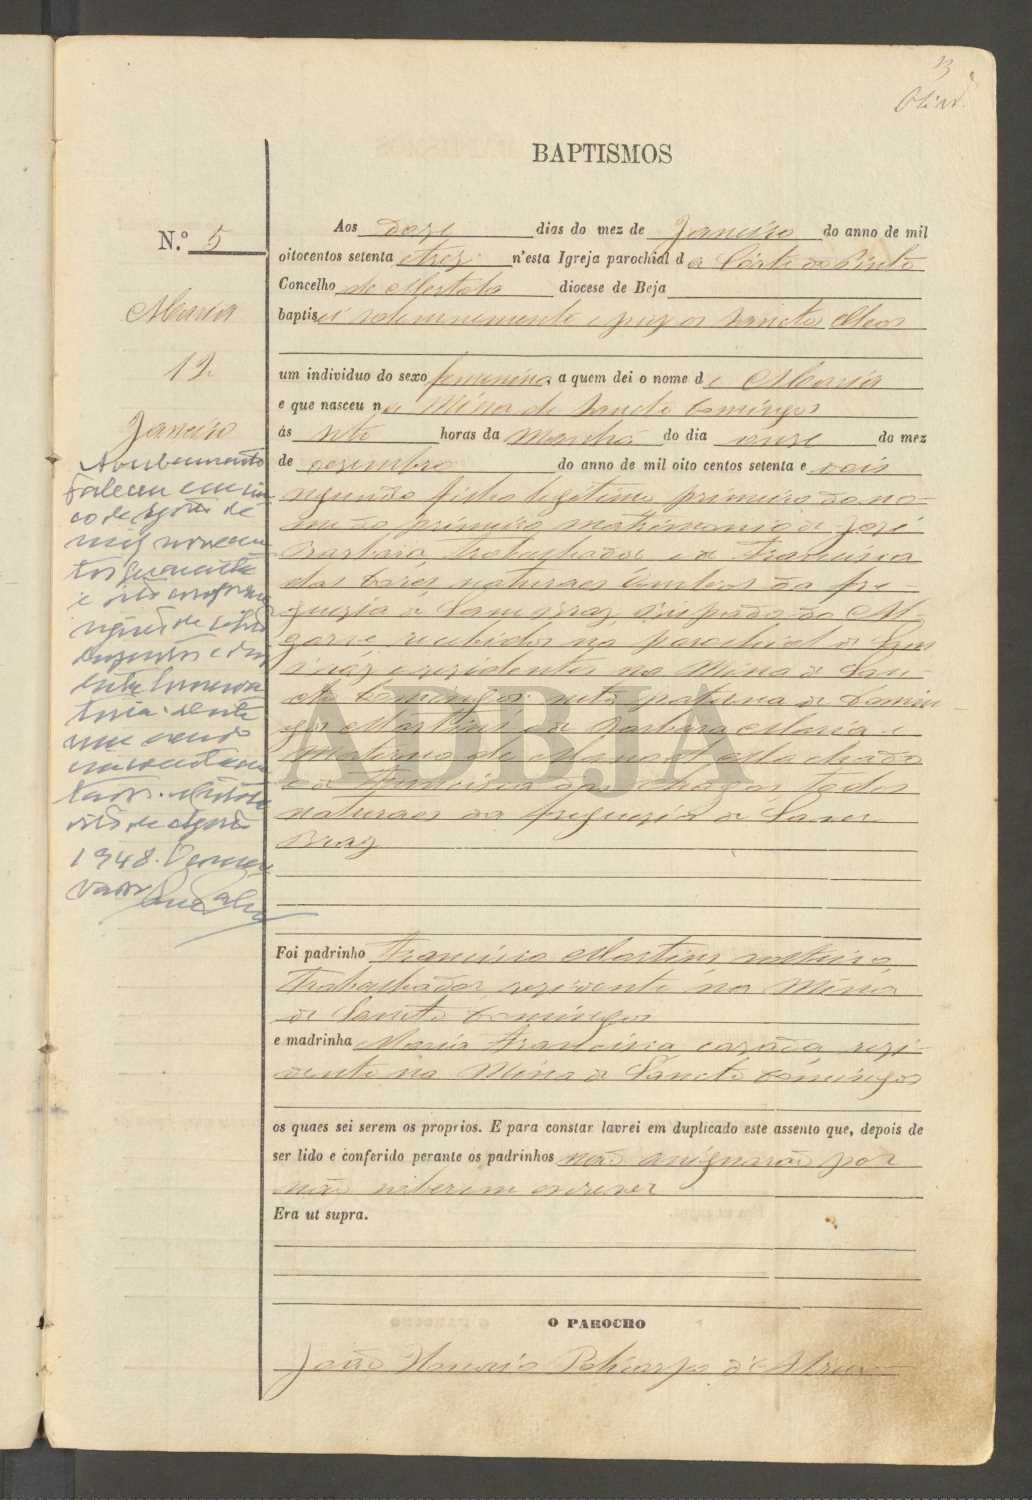 3
BAPTISMOS
N.º 5
Maria
12
Janeiro
Aos doze dias do mez de Janeiro do anno de mil
oitocentos setenta e trez n'esta Igreja parochial d a Córte do Pinto
Concelho de Mertola diocese de Beja
baptisei solemnemente e puz os Sanctos Oleos
um individuo do sexo femenino a quem dei o nome de Maria
e que nasceu na Mina de Sancto Domingos
ás sete horas da manhã do dia onze do mez
de dezembro do anno de mil oito centos setenta e dois
segunda filha legitima primeira do no-
me do primeiro matrimonio de José
trabalhador e de Francisca
das Dores naturaes ambos da fre
guezia de San Braz bispado do Al
garve recebidos na parochial de San
Braz e rezidentes na Mina de San-
cto Domingos; neta paterna de Domin
gos Martins e de Barbara Maria e
Materna de Manoel Machado
e de Francisca das Chagas todos
naturaes da freguezia de San
Braz
Foi padrinho Francisco Martins solteiro
trabalhador rezidente na Mina
de Sancto Domingos
e madrinha Maria Francisca cazada rezi-
dente na Mina de Sancto Domingos
os quaes sei serem os proprios. E para constar lavrei em duplicado este assento que, depois de
ser lido e conferido perante os padrinhos não assignarão por
não saberem escrever
Era ut supra.
O PAROCHO
João Policarpo de Abreu
Averbamento
Faleceu em cin
co de Agosto de
mil novecen
tos quarenta
e oito
1948.
ADBJA